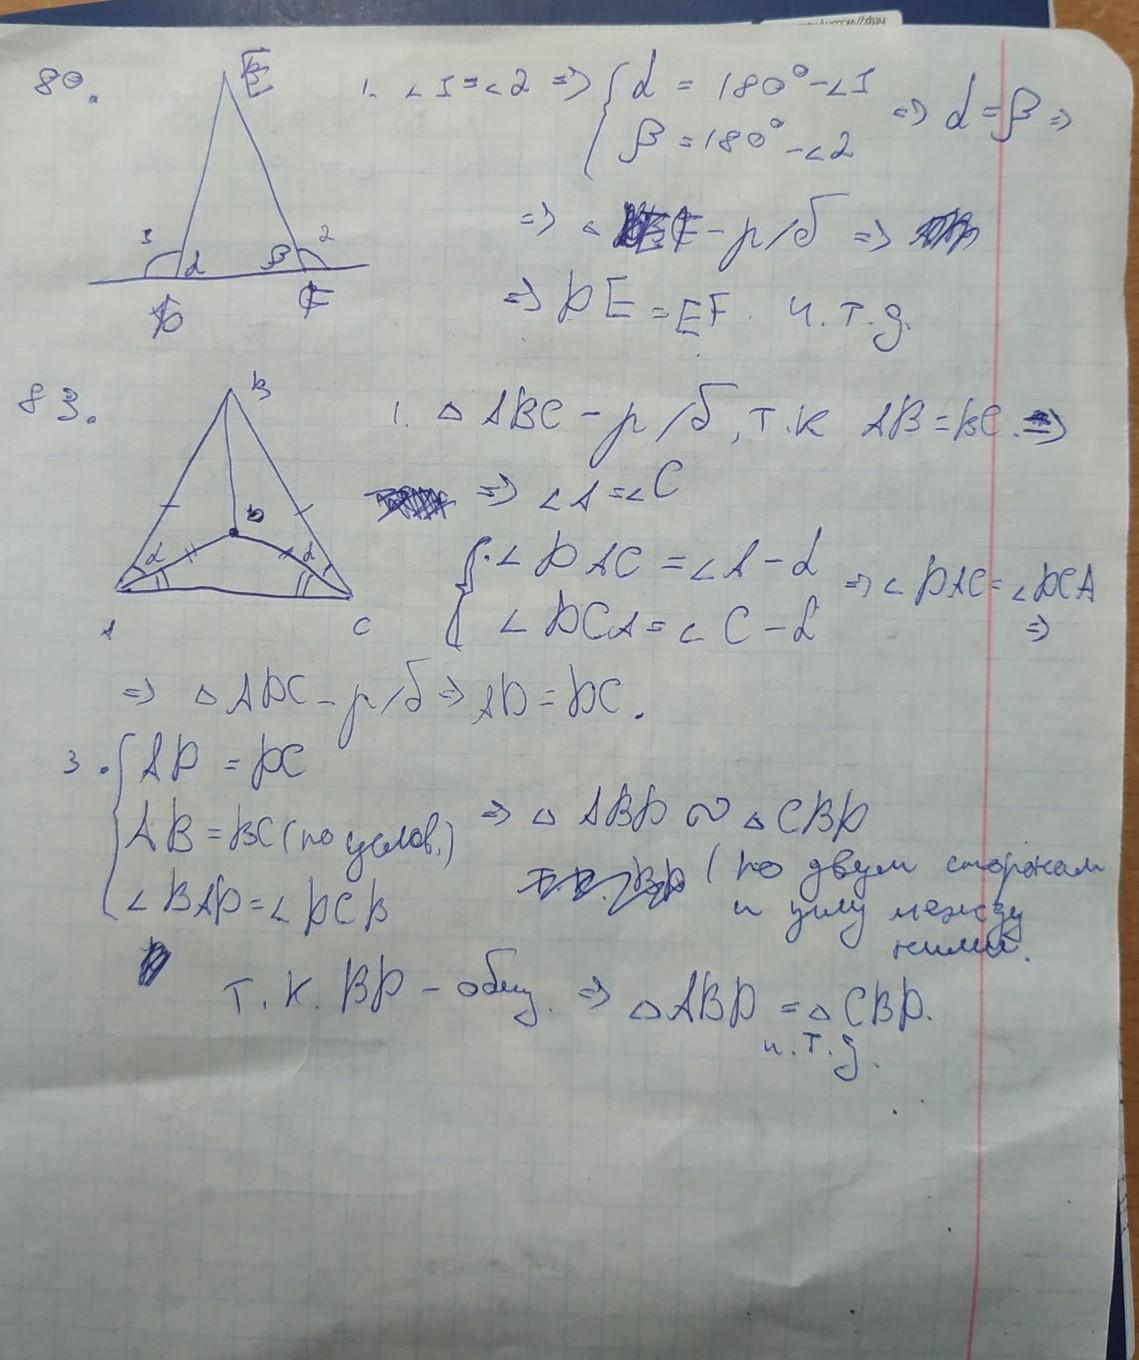 80.
E
1 α β 2
D F
1. ∠1=∠2 => { α = 180° - ∠1
β = 180° - ∠2 => α = β =>
=> △ - р/б =>
=> DE = EF. ч.т.д.
83.
B
D
α α
A C
1. △ ABC - р/б, т.к AB = BC. =>
=> ∠A = ∠C
{ ∠DAC = ∠A - α
∠DCA = ∠C - α => ∠DAC = ∠DCA
=>
=> △ ADC - р/б => AD = DC.
3. { AD = DC
AB = BC (по услов.) => △ ABD ∾ △ CBD
∠BAD = ∠DCB (по двум сторонам
и углу между
ними.
т.к. BD - общ. => △ABD = △CBD.
ч.т.д.